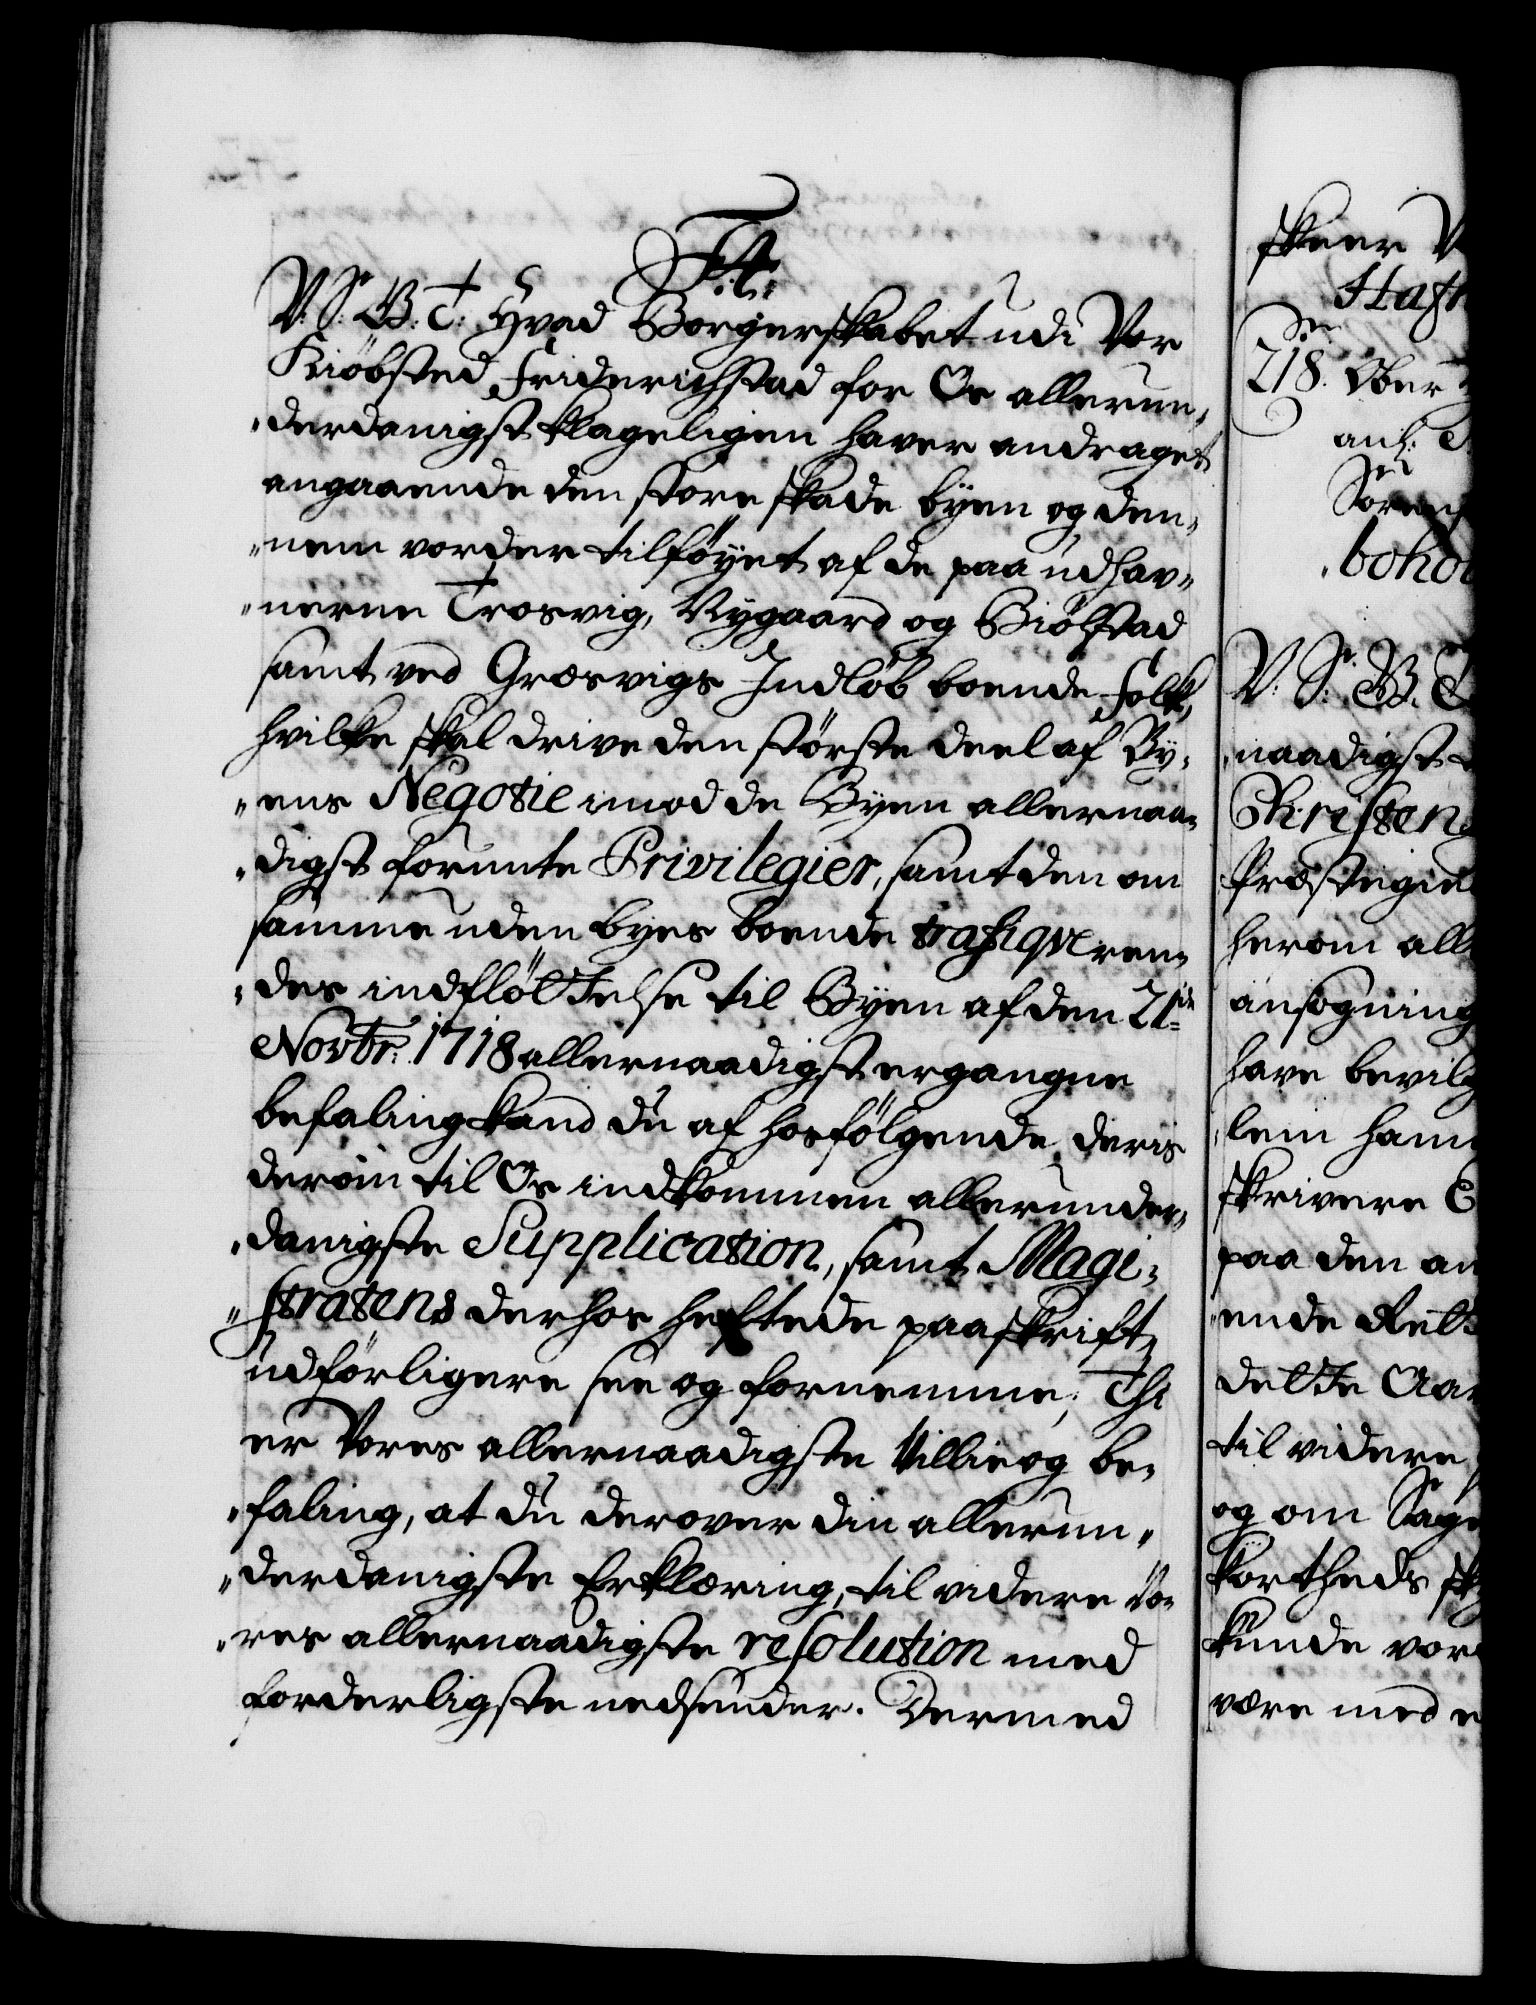 F 4.
V: S: B: T: Hvad Borgerskabet udi Vor
Kiöbsted Friderichstad for Os allerun„
„derdanigst klageligen haver andraget
angaaende den store skade byen og den„
„nem vorder tilföyet af de paa udhav„
„nerne Trosvig, Nygaard og Biölstad
samt ved Græsvigs Indlöb boende Folk,
hvilke skal drive den störste deel af By„
„ens Negotie imod de Byen allernaa„
„digst forunte Privilegier, samt den om
samme uden byes boende trafiqveren„
„des indflöttelse til Byen af den 21de
Novbr: 1718 allernaadigst ergangne
befaling kand du af hosfölgende deris
derom til Os indkommen allerunder„
„danigste Supplication, samt Magi„
„stratens derhos heftede paaskrift
udförligere see og fornemme; Thi
er Vores allernaadigste Villie og be„
„faling, at du derover din allerun„
„derdanigste Erklæring, til videre Vo„
„res allernaadigste resolution med
forderligste nedsender. Dermed
skeer V
Hafn
218. Ober
anl:
Sören
boho
V: S: B: T
„naadigst
Christen
Præstegie
herom all
ansögning
have bevilg
„lem ham
skrivere
paa den an
„ende Rett
dette Aar
til videre
og om Sage
kortheds sk
kunde vor
være med e